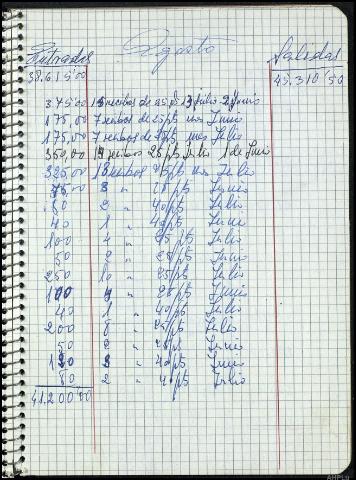 Entradas Agosto Salidas
38.615'00 45.310'50
375'00 15 recibos de 25 pts 13 Julio 2 Junio
175,00 7 recibos de 25 pts mes Junio
175,00 7 recibos de 25 pts mes Julio
350,00 14 recibos 25 pts Julio 1 de Junio
325,00 13 recibos 25 pts mes Julio
75,00 3 " 25 pts Junio
80 2 " 40 pts Julio
40 1 " 40 pts Junio
100 4 " 25 pts Julio
50 2 " 25 pts Junio
250 10 " 25 pts Julio
100 4 " 25 pts Junio
40 1 " 40 pts Julio
200 8 " 25 pts Julio
50 2 " 25 pts Junio
120 3 " 40 pts Junio
80 2 " 40 pts Julio
41.200'00
AHPLU